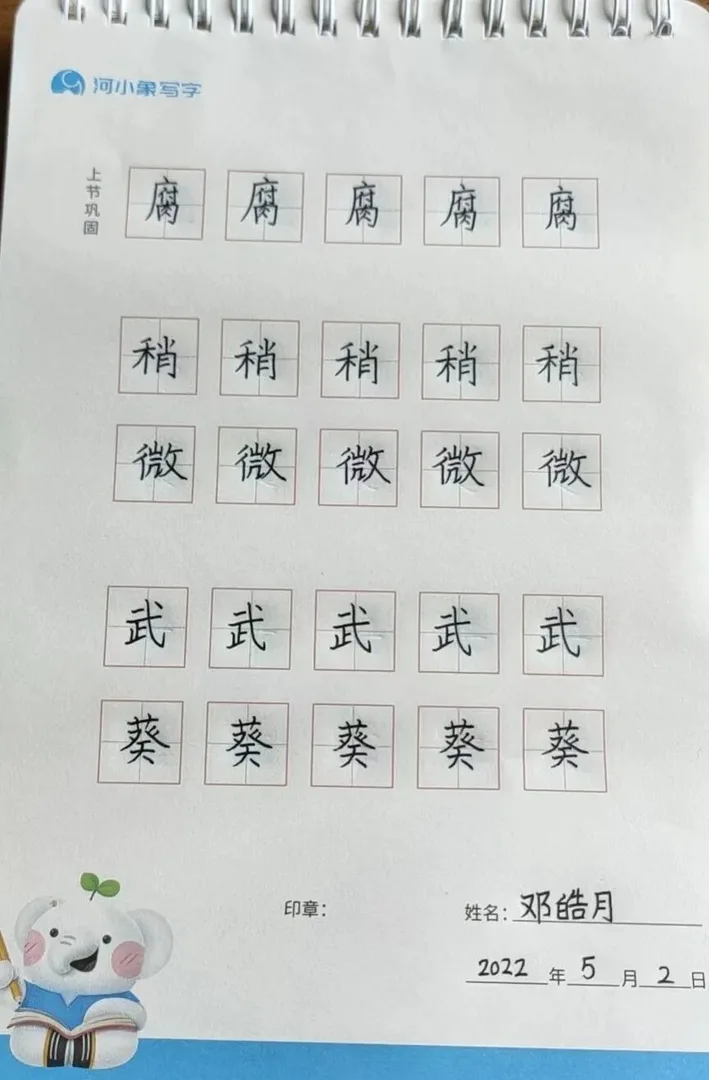 河小象写字
上节巩固
腐 腐 腐 腐 腐
稍 稍 稍 稍 稍
微 微 微 微 微
武 武 武 武 武
葵 葵 葵 葵 葵
印章: 姓名: 邓皓月
2022 年 5 月 2 日